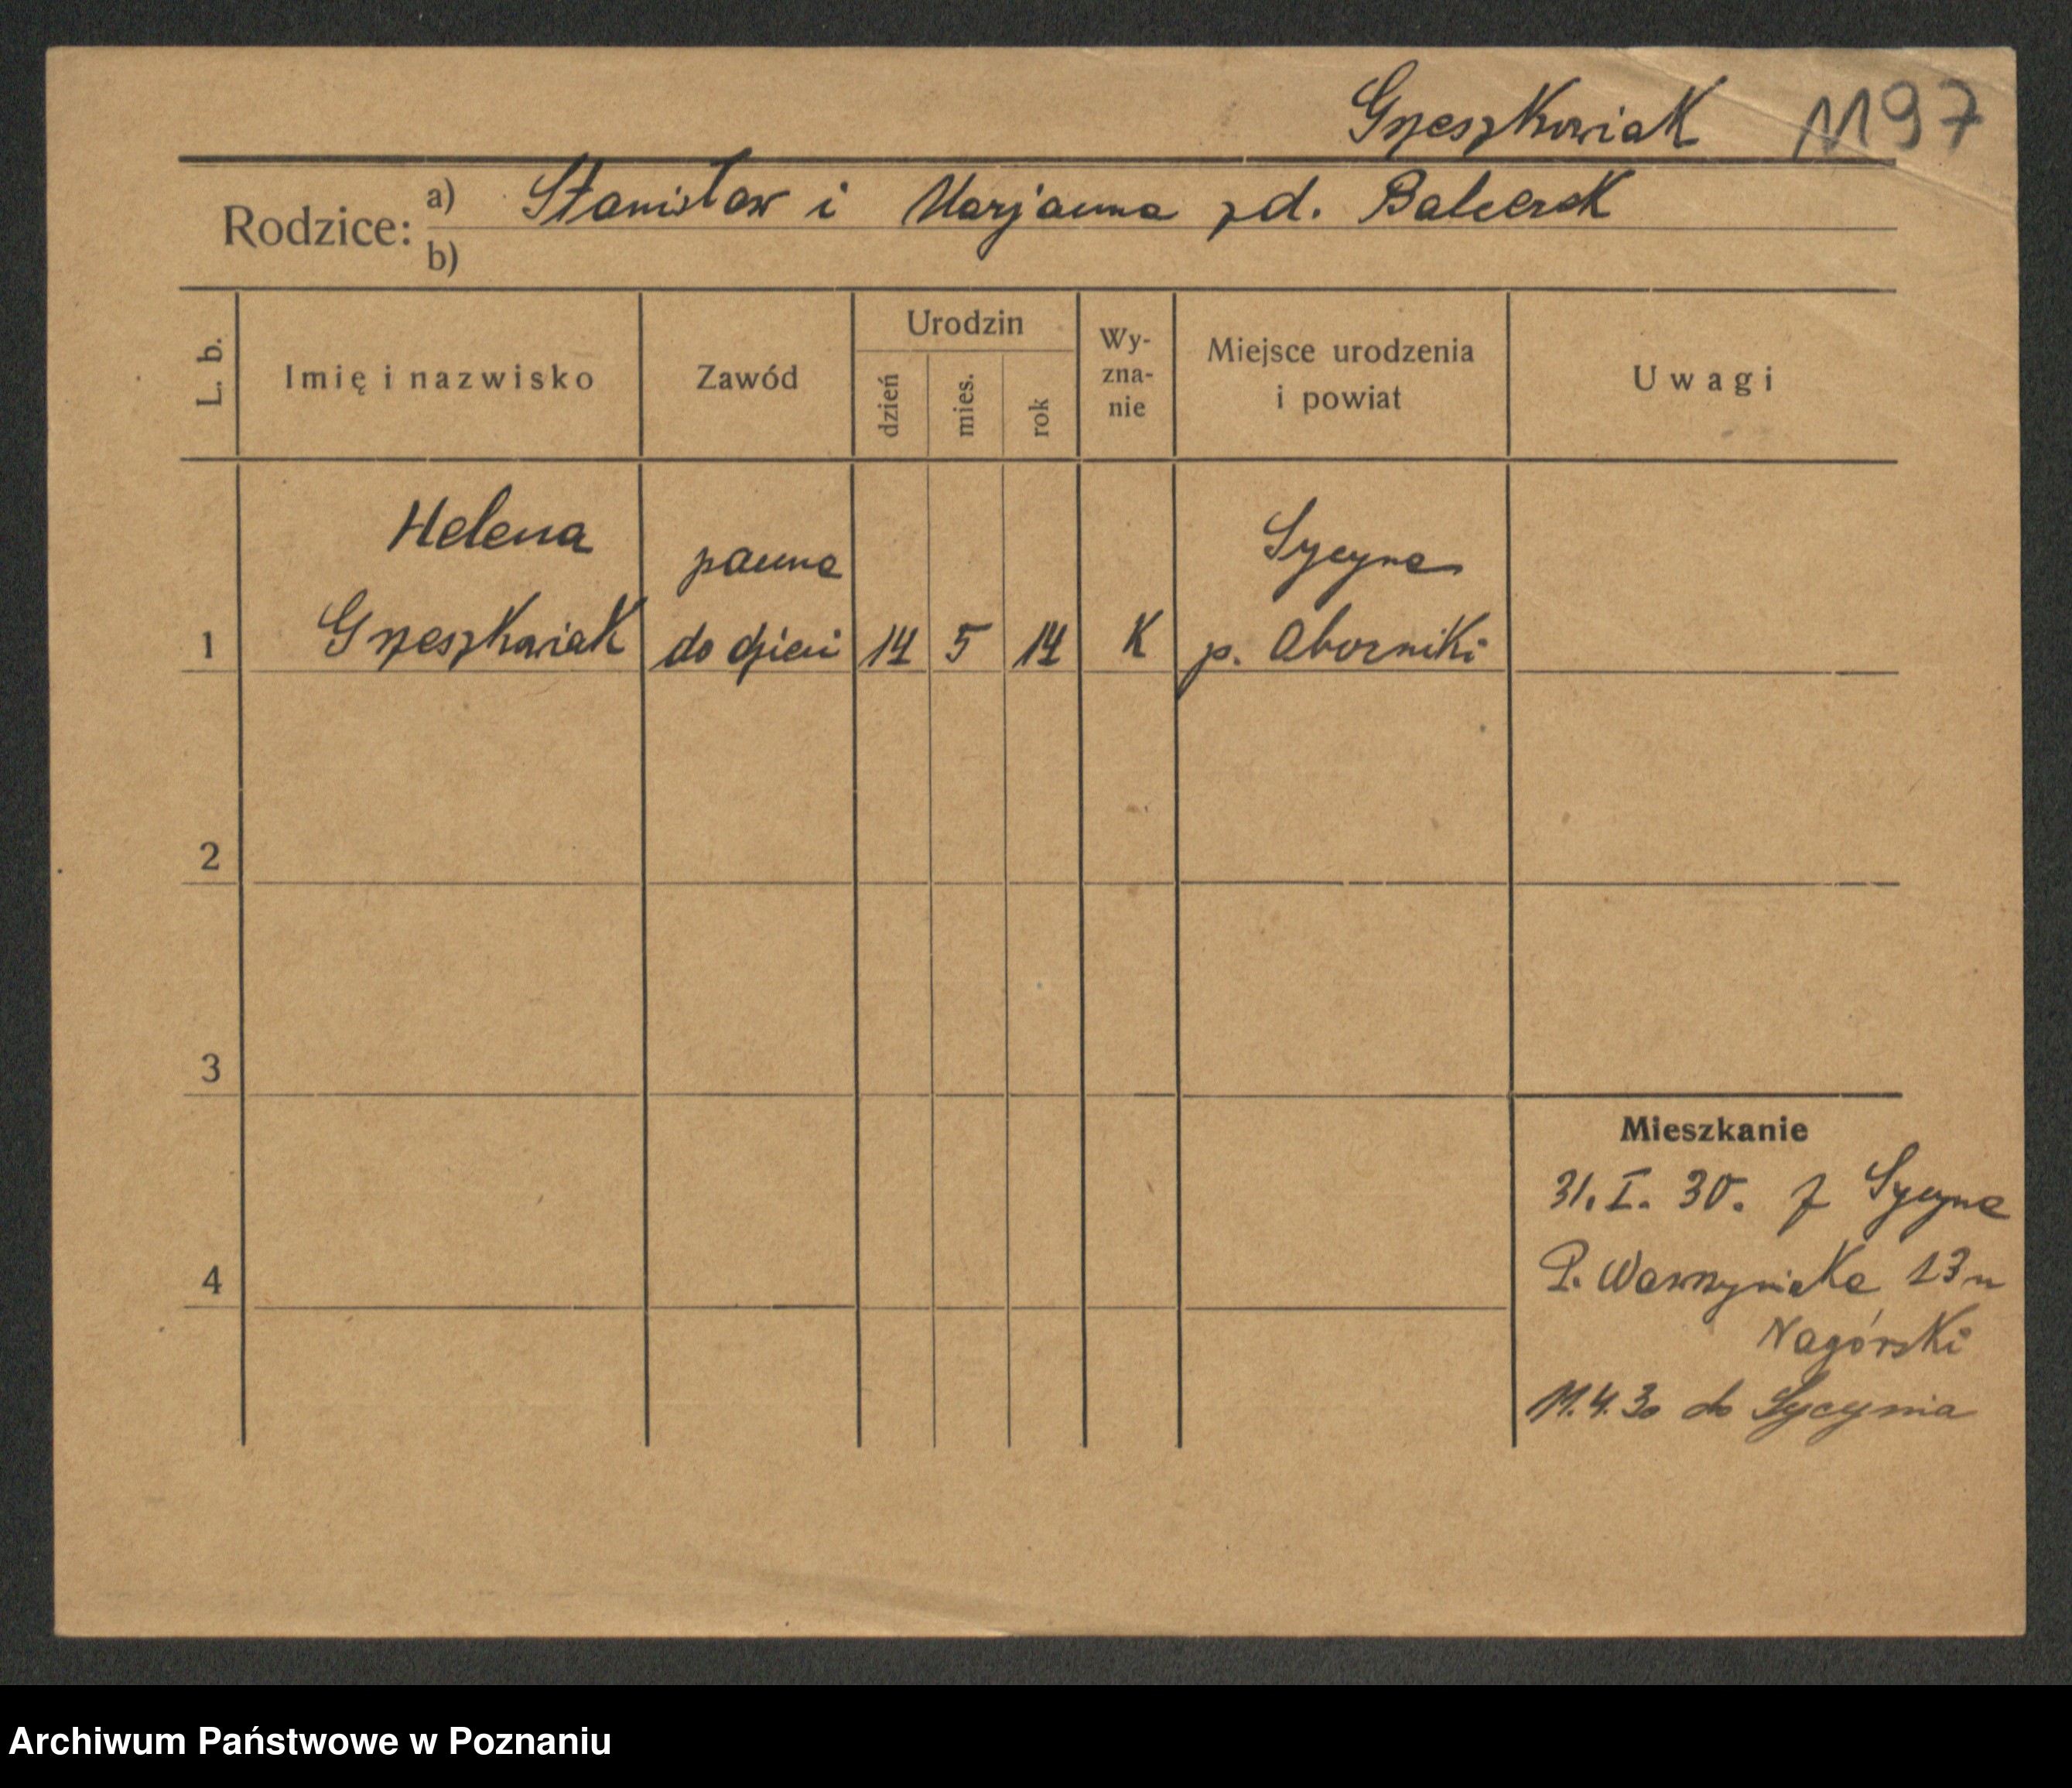 Grzeszkowiak 1197
Rodzice: a) Stanisław i Marjanna zd. Balcerek
b)
L. b. Imię i nazwisko Zawód Urodzin dzień mies. rok Wy-zna-nie Miejsce urodzenia i powiat Uwagi
Helena panna Sycyna
1 Grzeszkowiak do dzieci 14 5 14 K p. Oborniki
2
3
Mieszkanie
31. I. 30. z Sycyna
P. Wawrzyniaka 13 u
4
Nagórski
11.4.30 do Sycynia
Archiwum Państwowe w Poznaniu